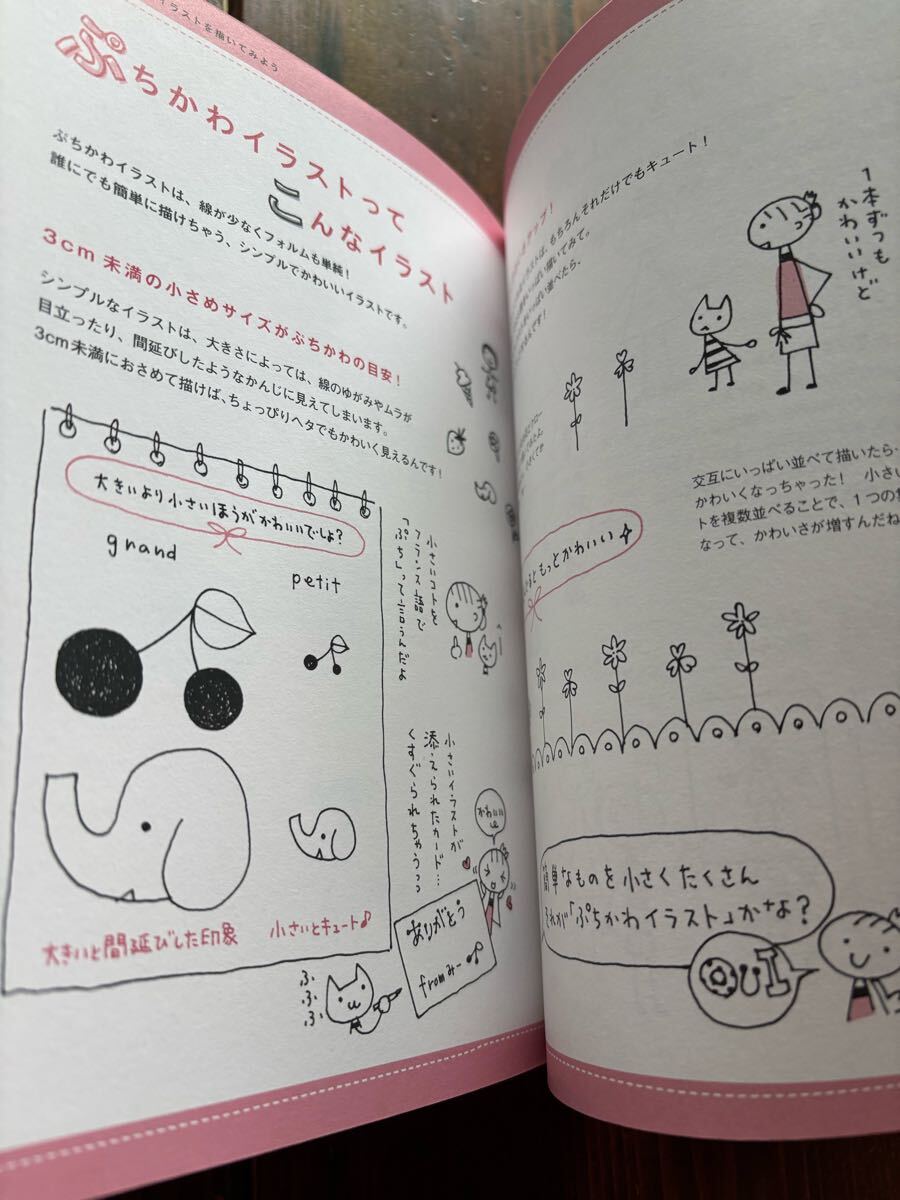 イラストを描いてみよう
ぷちかわイラストって
こんなイラスト
ぷちかわイラストは、線が少なくフォルムも単純!
誰にでも簡単に描けちゃう、シンプルでかわいいイラストです。
3cm未満の小さめサイズがぷちかわの目安!
シンプルなイラストは、大きさによっては、線のゆがみやムラが
目立ったり、間延びしたようなかんじに見えてしまいます。
3cm未満におさめて描けば、ちょっぴりヘタでもかわいく見えるんです!
大きいより小さいほうがかわいいでしょ?
grand
petit
大きいと間延びした印象
小さいとキュート♪
小さいコトを
フランス語で
「ぷち」って言うんだよ
小さいイラストが
添えられたカード…
くすぐられちゃうっっ
かわいい
ありがとう
fromみー
ふふふ
ップ!
ラストは、もちろんそれだけでもキュート!
いっぱい描いてみて。
いっぱい並べたら、
るんです!
1本ずつも
かわいいけど
交互にいっぱい並べて描いたら…
かわいくなっちゃった! 小さい
トを複数並べることで、1つの
なって、かわいさが増すんだね
るともっとかわいい☆
簡単なものを小さくたくさん
それが「ぷちかわイラスト」かなぁ?
OUI